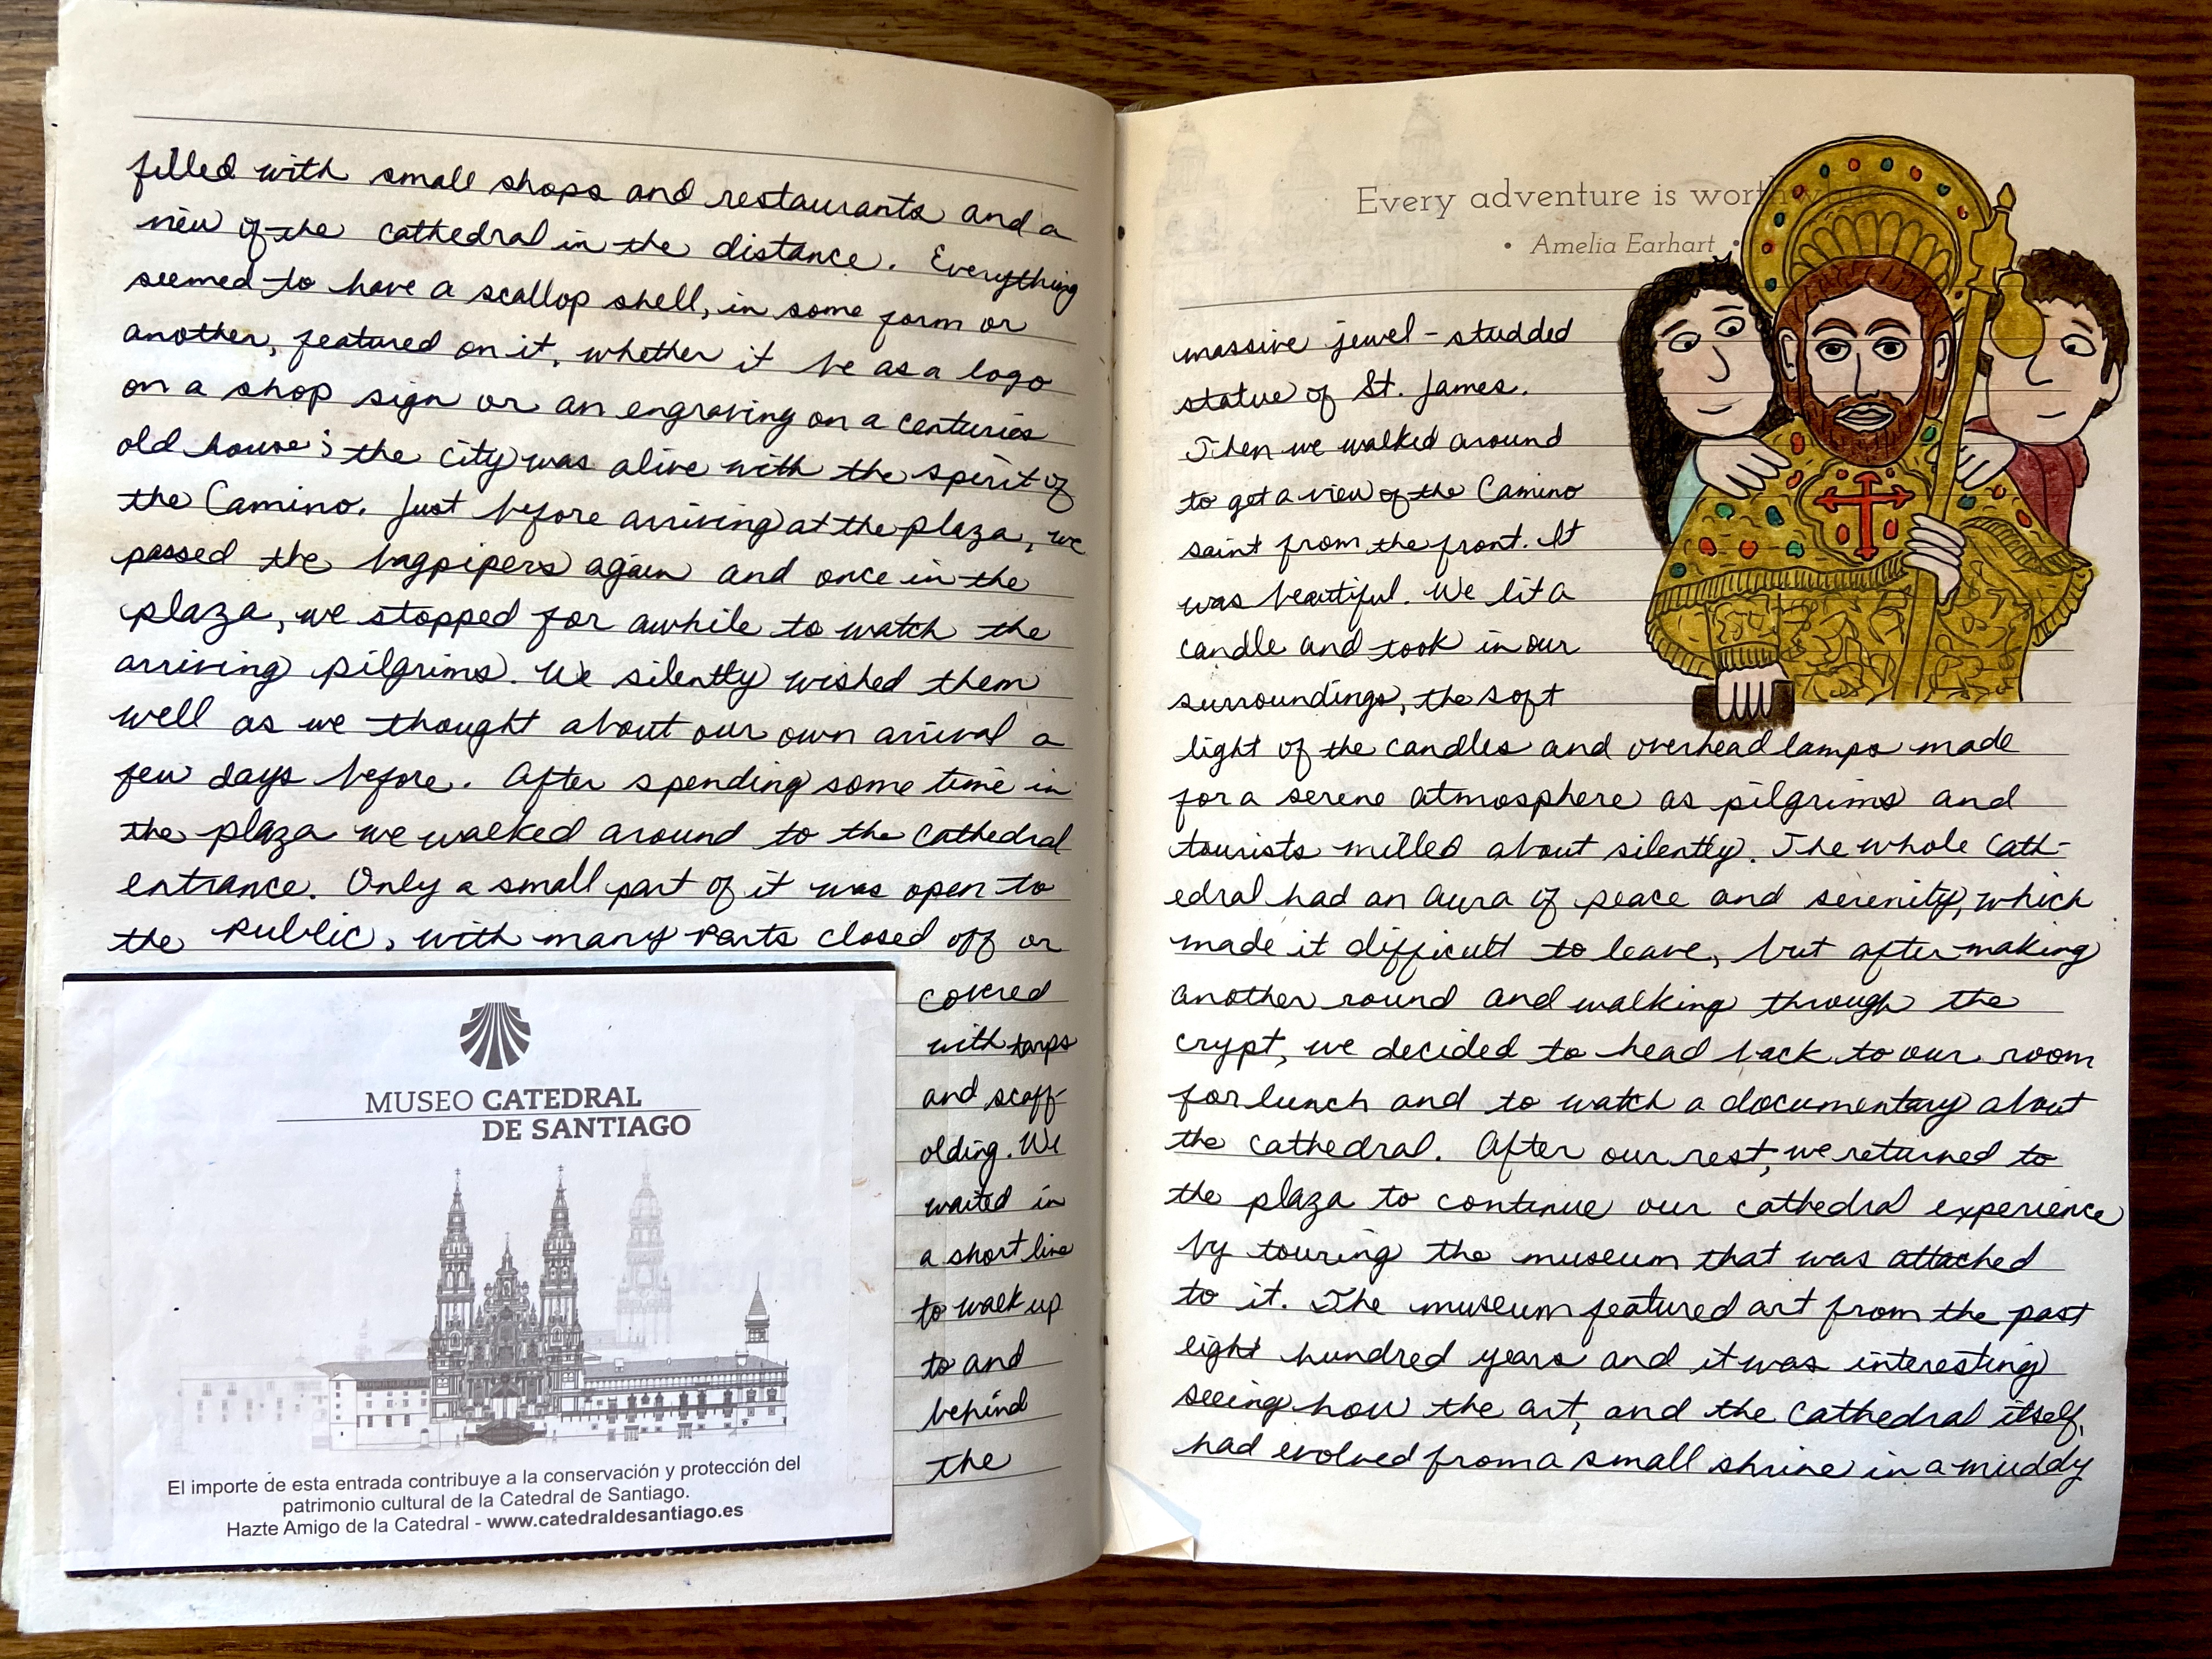 filled with small shops and restaurants and a
view of the cathedral in the distance. Everything
seemed to have a scallop shell, in some form or
another, featured on it, whether it be as a logo
on a shop sign or an engraving on a centuries
old house; the city was alive with the spirit of
the Camino. Just before arriving at the plaza, we
passed the bagpipers again and once in the
plaza, we stopped for awhile to watch the
arriving pilgrims. We silently wished them
well as we thought about our own arrival a
few days before. After spending some time in
the plaza we walked around to the cathedral
entrance. Only a small part of it was open to
the public, with many parts closed off or
covered
with tarps
and scaff-
olding. We
waited in
a short line
to walk up
to and
behind
the
MUSEO CATEDRAL
DE SANTIAGO
El importe de esta entrada contribuye a la conservación y protección del
patrimonio cultural de la Catedral de Santiago.
Hazte Amigo de la Catedral - www.catedraldesantiago.es
Every adventure is worthwhile
• Amelia Earhart •
massive jewel-studded
statue of St. James.
Then we walked around
to get a view of the Camino
saint from the front. It
was beautiful. We lit a
candle and took in our
surroundings, the soft
light of the candles and overhead lamps made
for a serene atmosphere as pilgrims and
tourists milled about silently. The whole Cath-
edral had an aura of peace and serenity, which
made it difficult to leave, but after making
another round and walking through the
crypt, we decided to head back to our room
for lunch and to watch a documentary about
the cathedral. After our rest, we returned to
the plaza to continue our cathedral experience
by touring the museum that was attached
to it. The museum featured art from the past
eight hundred years and it was interesting
seeing how the art, and the cathedral itself,
had evolved from a small shrine in a muddy